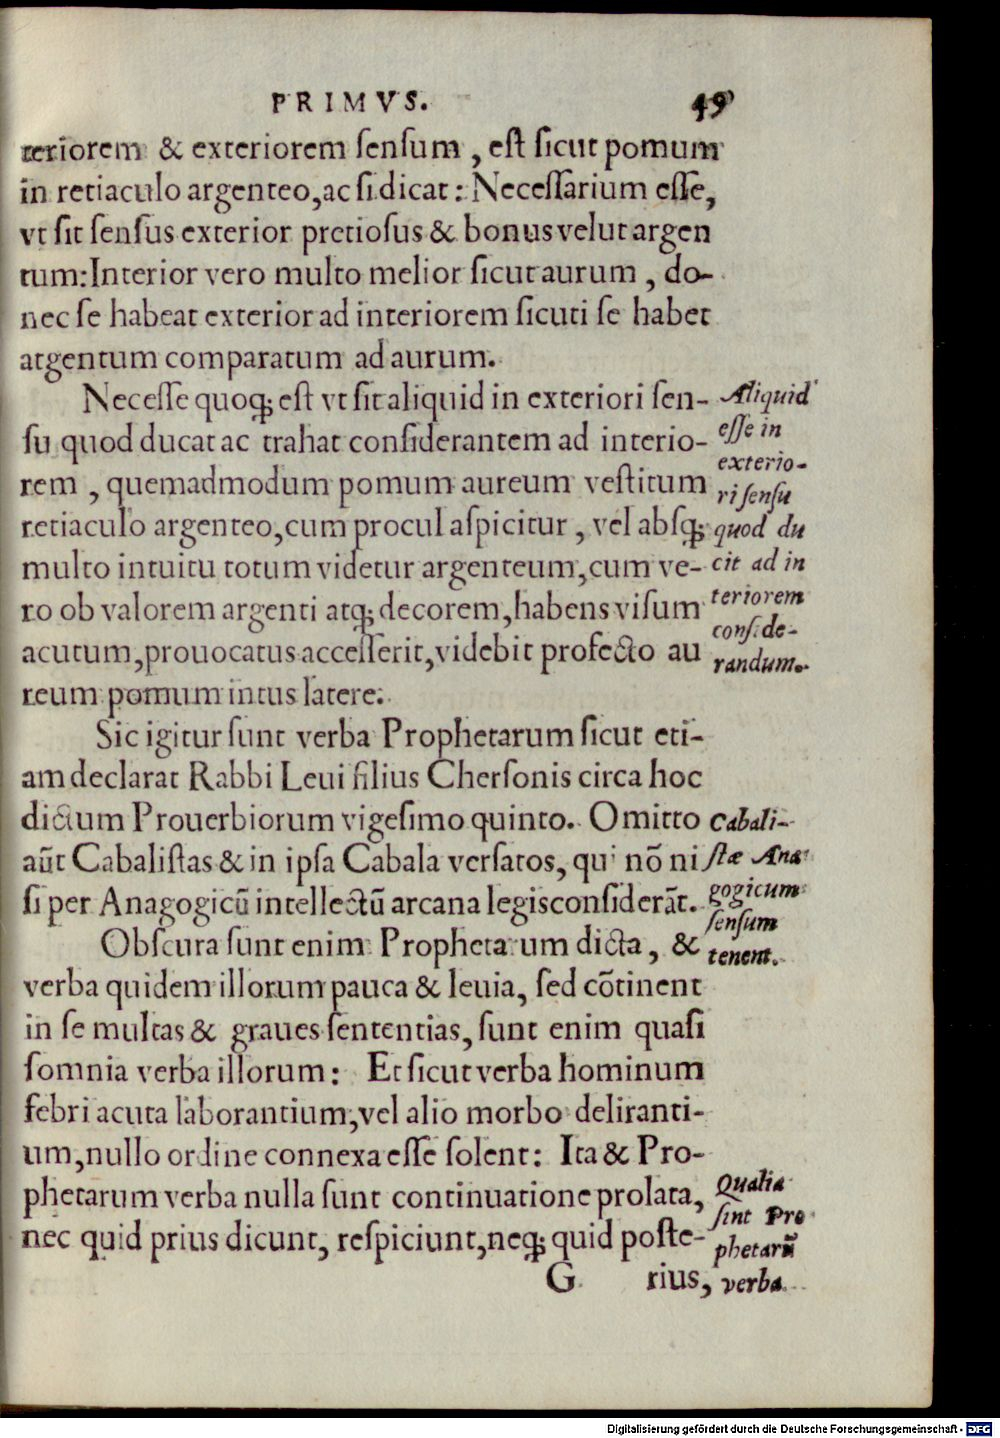 PRIMVS. 49
teriorem & exteriorem ſenſum, eſt ſicut pomum
in retiaculo argenteo, ac ſi dicat: Neceſſarium eſſe,
vt ſit ſenſus exterior pretioſus & bonus velut argen
tum: Interior vero multo melior ſicut aurum, do-
nec ſe habeat exterior ad interiorem ſicuti ſe habet
argentum comparatum ad aurum.
Neceſſe quoq; eſt vt ſit aliquid in exteriori ſen-
ſu quod ducat ac trahat conſiderantem ad interio-
rem, quemadmodum pomum aureum veſtitum
retiaculo argenteo, cum procul aſpicitur, vel abſq;
multo intuitu totum videtur argenteum, cum ve-
ro ob valorem argenti atq; decorem, habens viſum
acutum, prouocatus acceſſerit, videbit profecto au
reum pomum intus latere.
Aliquid
eſſe in
exterio-
ri ſenſu
quod du
cit ad in
teriorem
conſide-
randum.
Sic igitur ſunt verba Prophetarum ſicut eti-
am declarat Rabbi Leui filius Cherſonis circa hoc
dictum Prouerbiorum vigeſimo quinto. Omitto
aūt Cabaliſtas & in ipſa Cabala verſatos, qui nō ni
ſi per Anagogicū intellectū arcana legis conſiderāt.
Cabali-
ſtæ Ana
gogicum
ſenſum
tenent.
Obſcura ſunt enim Prophetarum dicta, &
verba quidem illorum pauca & leuia, ſed cōtinent
in ſe multas & graues ſententias, ſunt enim quaſi
ſomnia verba illorum: Et ſicut verba hominum
febri acuta laborantium, vel alio morbo deliranti-
um, nullo ordine connexa eſſe ſolent: Ita & Pro-
phetarum verba nulla ſunt continuatione prolata,
nec quid prius dicunt, reſpiciunt, neq; quid poſte-
Qualia
ſint Pro
phetarū
verba.
G rius,
Digitalisierung gefördert durch die Deutsche Forschungsgemeinschaft - DFG